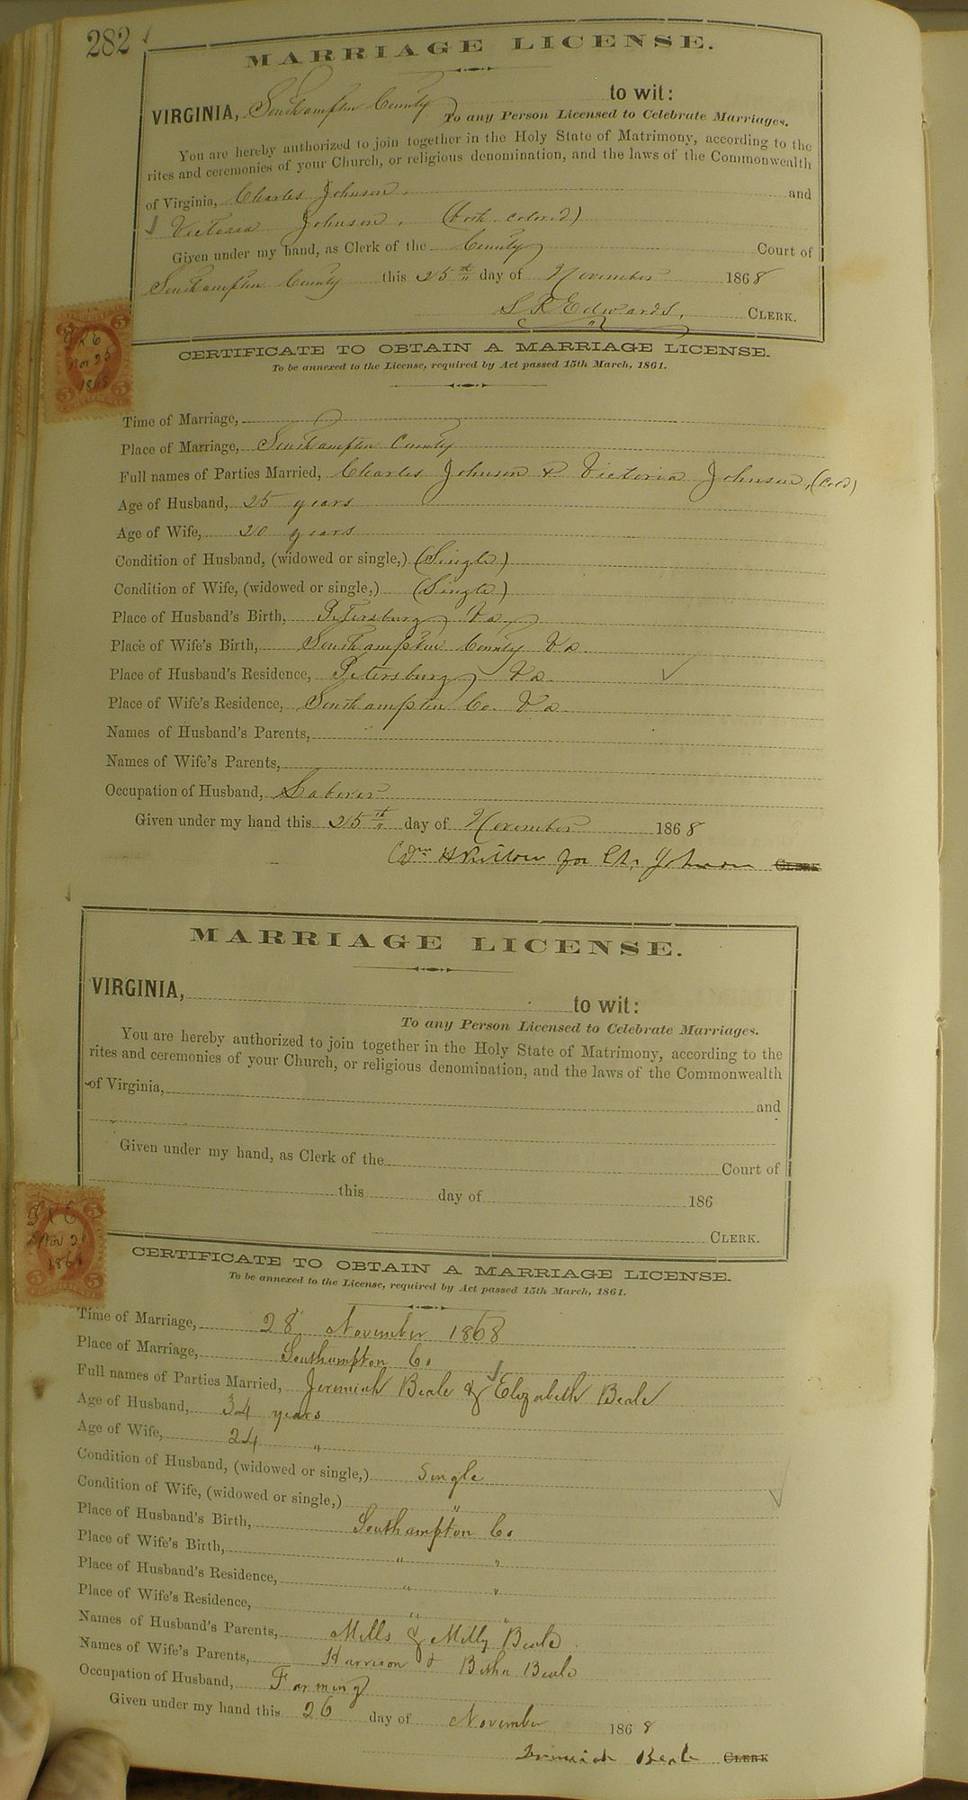 282
MARRIAGE LICENSE.
VIRGINIA, Southampton County to wit:
To any Person Licensed to Celebrate Marriages.
You are hereby authorized to join together in the Holy State of Matrimony, according to the
rites and ceremonies of your Church, or religious denomination, and the laws of the Commonwealth
of Virginia, Charles Johnson, and
Victoria Johnson, (both colored)
Given under my hand, as Clerk of the County Court of
Southampton County this 25th day of November 1868
L R Edwards, CLERK.
CERTIFICATE TO OBTAIN A MARRIAGE LICENSE.
To be annexed to the License, required by Act passed 15th March, 1861.
Nov 25
1868
Time of Marriage,
Place of Marriage, Southampton County
Full names of Parties Married, Charles Johnson & Victoria Johnson, (Cold)
Age of Husband, 25 years
Age of Wife, 20 years
Condition of Husband, (widowed or single,) (Single)
Condition of Wife, (widowed or single,) (Single)
Place of Husband's Birth, Petersburg Va
Place of Wife's Birth, Southampton County Va
Place of Husband's Residence, Petersburg Va
Place of Wife's Residence, Southampton Co. Va
Names of Husband's Parents,
Names of Wife's Parents,
Occupation of Husband, Laborer
Given under my hand this 25th day of November 1868
for Ch. Johnson CLERK
MARRIAGE LICENSE.
VIRGINIA, to wit:
To any Person Licensed to Celebrate Marriages.
You are hereby authorized to join together in the Holy State of Matrimony, according to the
rites and ceremonies of your Church, or religious denomination, and the laws of the Commonwealth
of Virginia, and
Given under my hand, as Clerk of the Court of
this day of 186
CLERK.
CERTIFICATE TO OBTAIN A MARRIAGE LICENSE.
To be annexed to the License, required by Act passed 15th March, 1861.
Time of Marriage, 28" November 1868
Place of Marriage, Southampton Co
Full names of Parties Married, Jeremiah Beale & Elizabeth Beale
Age of Husband, 34 years
Age of Wife, 24 "
Condition of Husband, (widowed or single,) Single
Condition of Wife, (widowed or single,) "
Place of Husband's Birth, Southampton Co
Place of Wife's Birth, " "
Place of Husband's Residence, " "
Place of Wife's Residence, " "
Names of Husband's Parents, Mills & Milly Beale
Names of Wife's Parents, Harrison & Beale
Occupation of Husband, Farming
Given under my hand this 26 day of November 1868
Jeremiah Beale CLERK